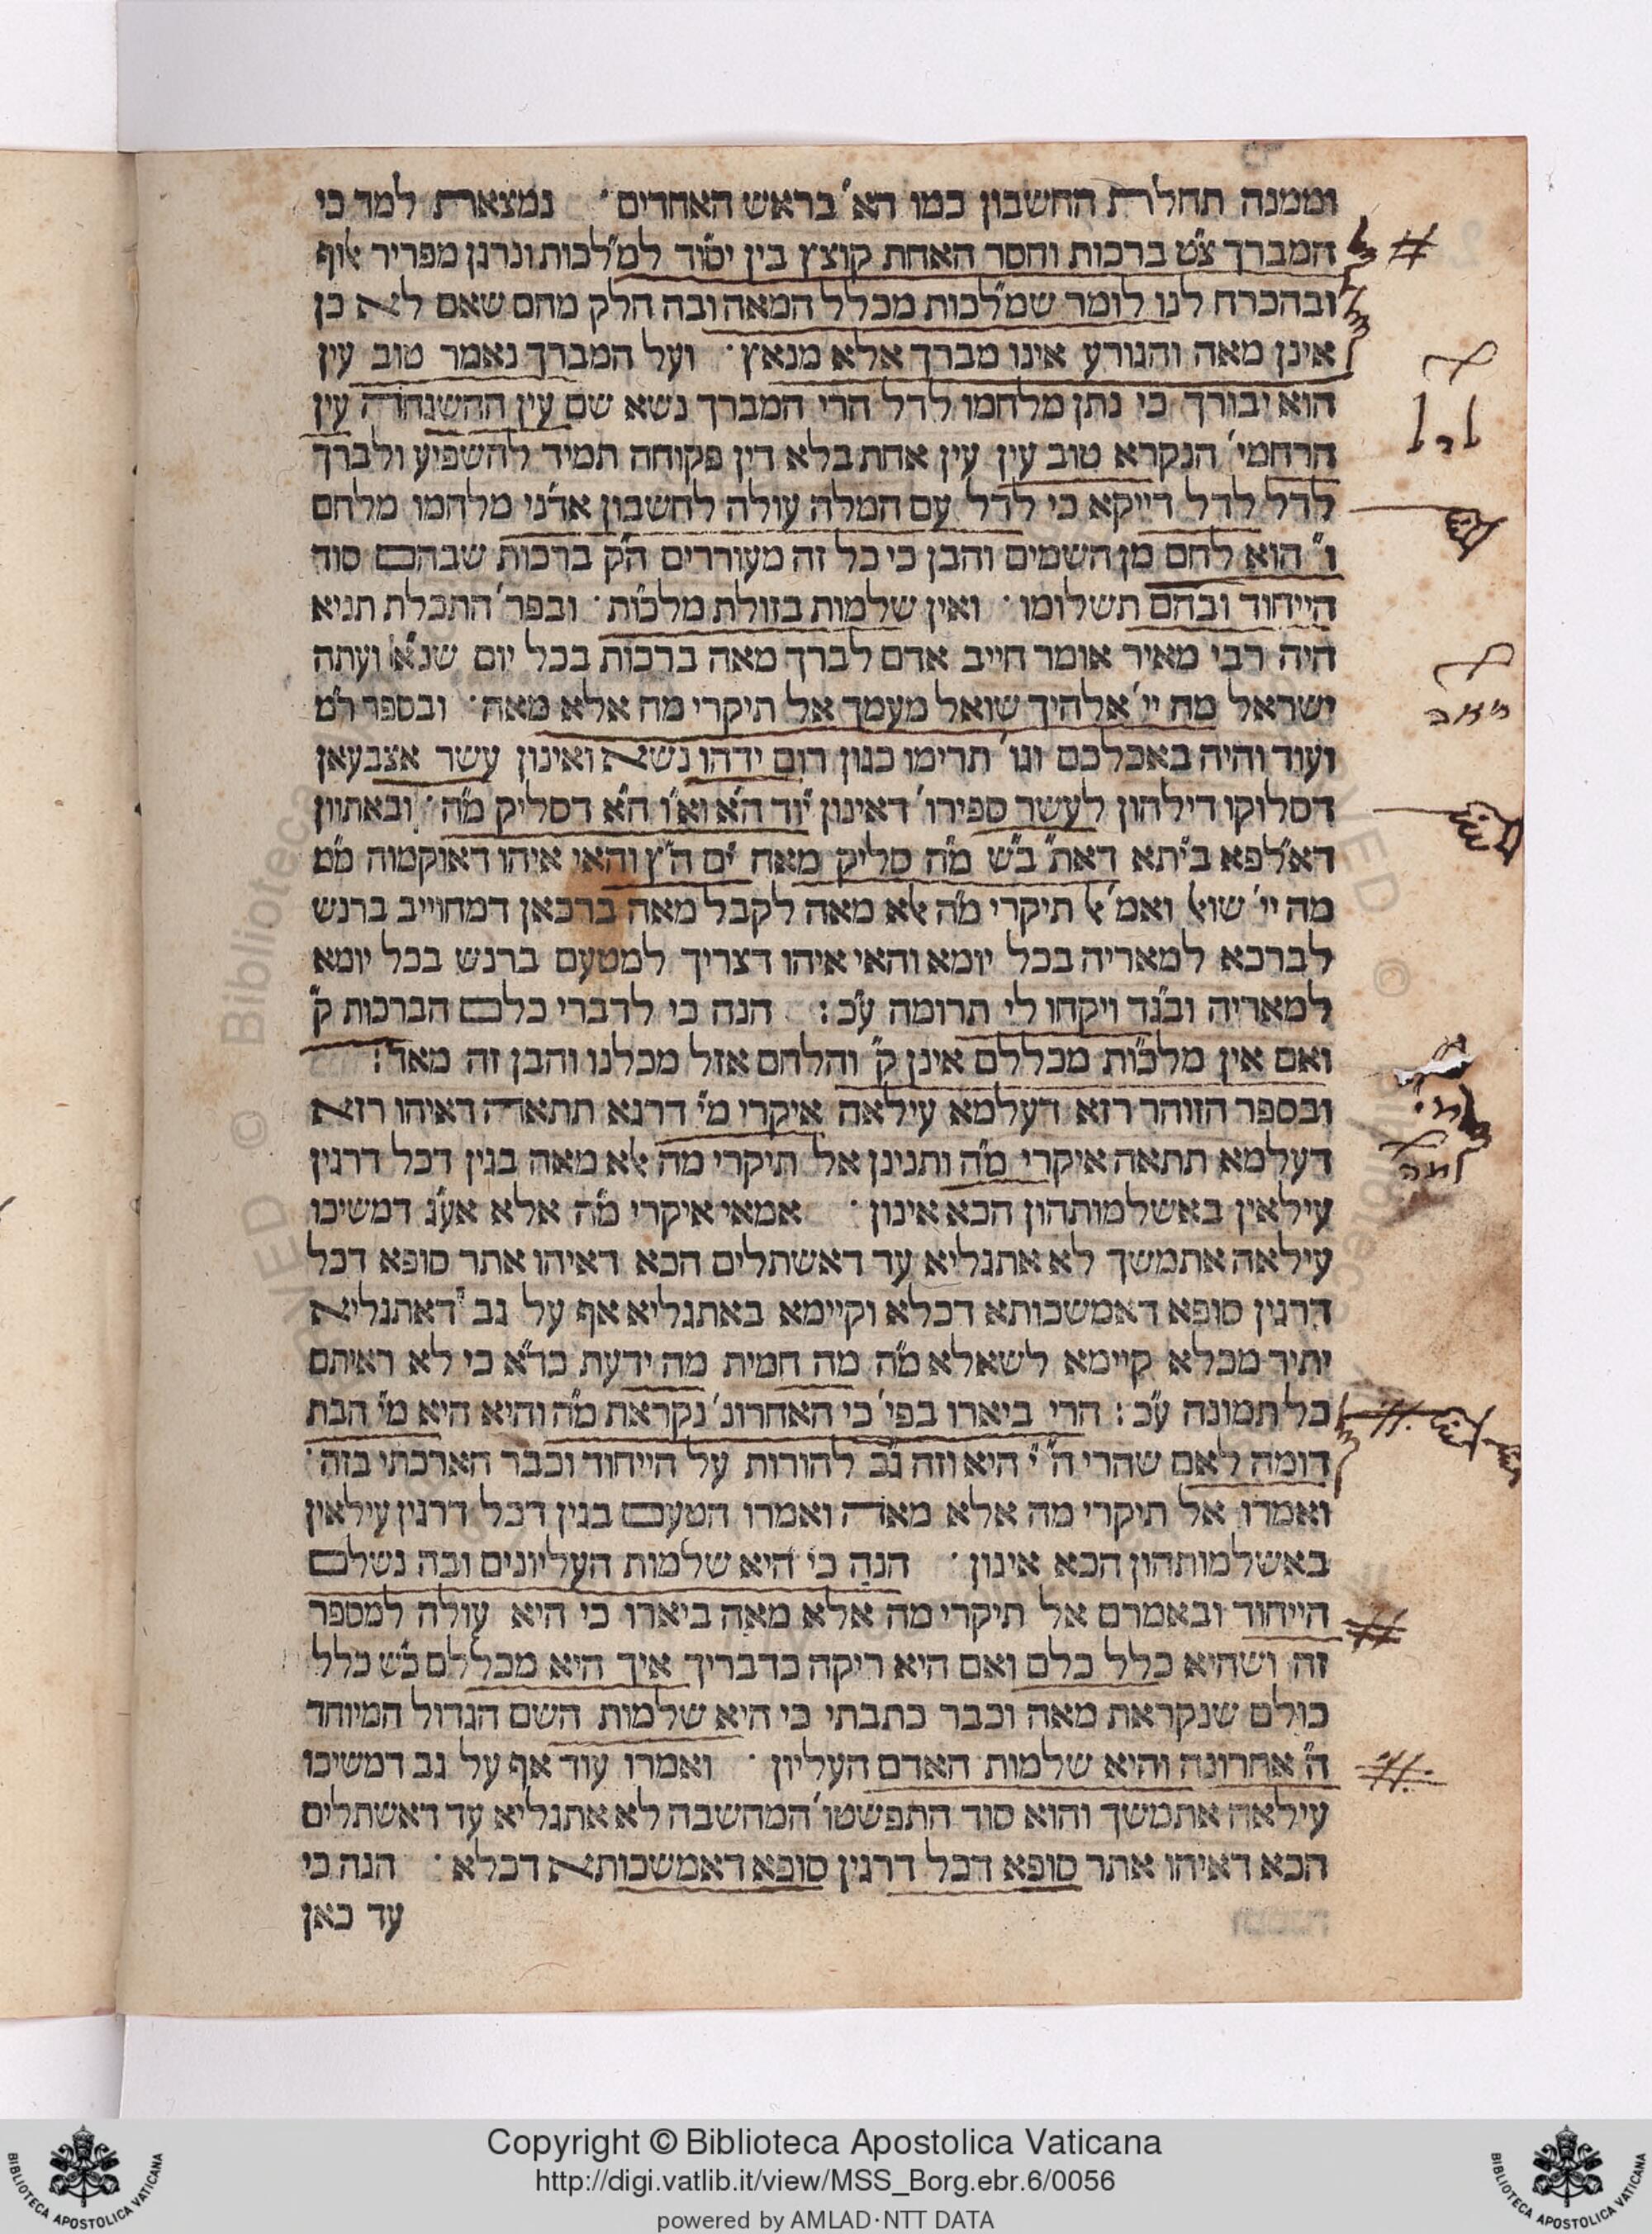 וממנה תחלת החשבון כמו הא' בראש האחדים · נמצאת למד כי
המברך צ"ט ברכות וחסר האחת קוצץ בין יס"וד למ"לכות ונרגן מפריד אוף
ובהכרח לנו לומר שמ"לכות מכלל המאה ובה חלק מהם שאם לא כן
אינן מאה והגורע אינו מברך אלא מנאץ · ועל המברך נאמר טוב עין
הוא יבורך כי נתן מלחמו לדל הרי המברך נשא שם עין ההשגחה עין
הרחמי' הנקרא טוב עין עין אחת בלא דין פקוחה תמיד להשפיע ולברך
לדל לדל דייקא כי לדל עם המלה עולה לחשבון אדני מלחמו מלחם
ו" הוא לחם מן השמים והבן כי כל זה מעוררים ה"ק ברכות שבהם סוד
הייחוד ובהם תשלומו · ואין שלמות בזולת מלכ"ות · ובפר' התכלת תניא
היה רבי מאיר אומר חייב אדם לברך מאה ברכות בכל יום שנ"א ועתה
ישראל מה יי' אלהיך שואל מעמך אל תיקרי מה אלא מאה · ובספר ר"מ
ועוד והיה באכלכם וגו' תרימו כגון רום ידהו נשא ואינון עשר אצבעאן
דסלוקו דילהון לעשר ספירו' דאינון י"וד ה"א וא"ו ה"א דסליק מ"ה · ובאתוון
דא"לפא ב"יתא דאת" ב"ש מ"ה סליק מאה י"ם ה"ץ והאי איהו דאוקמוה מ"ם
מה יי' שואל ואמ' אל תיקרי מ"ה אלא מאה לקבל מאה ברכאן דמחוייב ברנש
לברכא למאריה בכל יומא והאי איהו דצריך למטעם ברנש בכל יומא
למאריה ובג"ד ויקחו לי תרומה ע"כ : הנה כי לדברי כלם הברכות ק"
ואם אין מלכ"ות מכללם אינן ק" והלחם אזל מכלנו והבן זה מאד :
ובספר הזוהר רזא דעלמא עילאה איקרי מ"י דרגא תתאה דאיהו רזא
דעלמא תתאה איקרי מ"ה ותנינן אל תיקרי מה אלא מאה בגין דכל דרגין
עילאין באשלמותהון הכא אינון · אמאי איקרי מ"ה אלא אע"ג דמשיכו
עילאה אתמשך לא אתגליא עד דאשתלים הכא דאיהו אתר סופא דכל
דרגין סופא דאמשכותא דכלא וקיימא באתגליא אף על גב דאתגליא
יתיר מכלא קיימא לשאלא מ"ה מה חמית מה ידעת כד"א כי לא ראיתם
כל תמונה ע"כ : הרי ביארו בפי' כי האחרונ' נקראת מ"ה והיא היא מ"י הבת
דומה לאם שהרי ה" י" היא וזה ג"כ להורות על הייחוד וכבר הארכתי בזה ·
ואמרו אל תיקרי מה אלא מאה ואמרו הטעם בגין דכל דרגין עילאין
באשלמותהון הכא אינון · הנה כי היא שלמות העליונים ובה נשלם
הייחוד ובאמרם אל תיקרי מה אלא מאה ביארו כי היא עולה למספר
זה ושהיא כלל כלם ואם היא ריקה כדבריך איך היא מכללם כ"ש כלל
כולם שנקראת מאה וכבר כתבתי כי היא שלמות השם הגדול המיוחד
ה" אחרונה והיא שלמות האדם העליון · ואמרו עוד אף על גב דמשיכו
עילאה אתמשך והוא סוד התפשטו' המחשבה לא אתגליא עד דאשתלים
הכא דאיהו אתר סופא דכל דרגין סופא דאמשכותא דכלא · הנה כי
עד כאן
Copyright © Biblioteca Apostolica Vaticana
http://digi.vatlib.it/view/MSS_Borg.ebr.6/0056
powered by AMLAD·NTT DATA
BIBLIOTECA APOSTOLICA VATICANA
BIBLIOTECA APOSTOLICA VATICANA